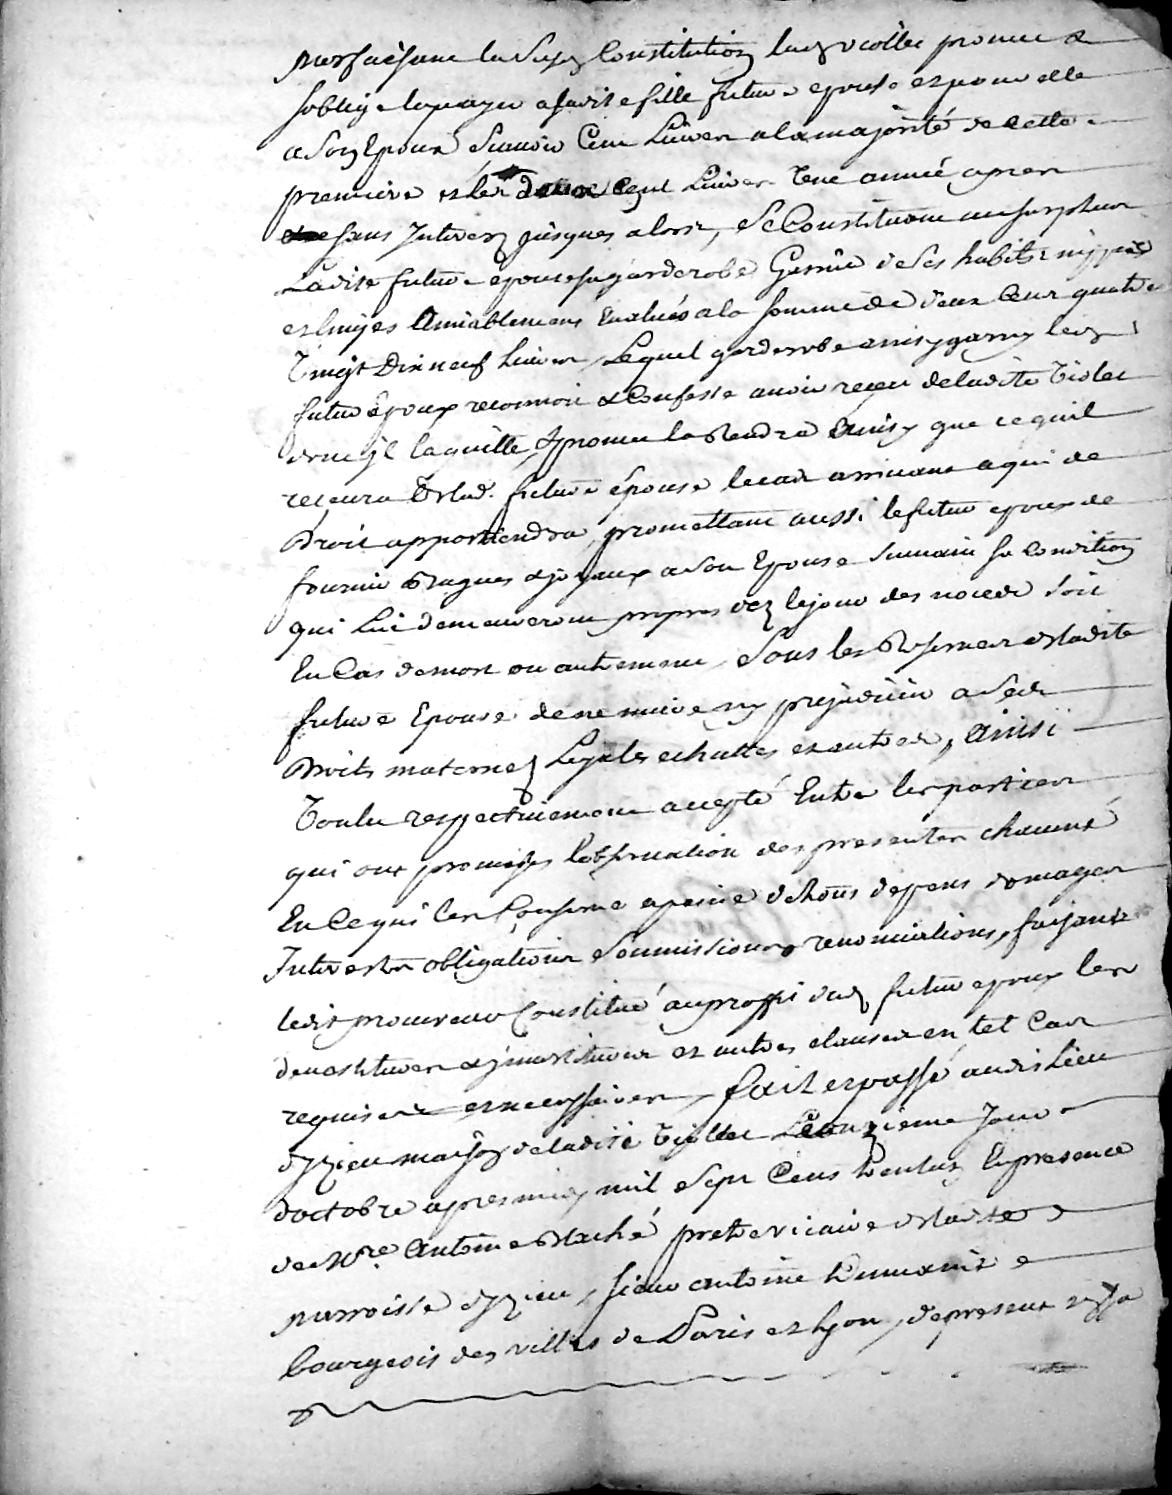 parfaisant la susd constitution lad violler promet &
soblige la payer a sadite fille future epouse et pour elle
a son Epoux Scavoir Cent Livres a la majorité de cette
premiere et les deux Cent Livres Une année apres
sans Interez jusques alors, Se Constituant au surplus
Ladite future epouse sa garderobe Garnie de Ses habits nippes
et linges Amiablement Evalués a la somme de deux Cent quatre
Vingt Dix neuf Livres, Lequel garderobe ainsy garny led
futur Epoux reconnoit & Confesse avoir reçeu de ladite violer
dont jl la quitte, & promet la Rendre Ainsy que ce quil
recevra de lad. future épouse le cas arrivant a qui de
Droit appartiendra, promettant aussi le futur epoux de
fournir Bagues & joyaux a son Epouse Suivant sa Condition
qui Lui demeureront propres dez le jour des noces Soit
En Cas de mort ou autrement, Sous les Reserves de ladite
future Epouse de ne nuire ny prejudicier a Ses
Droits maternels Legats echuttes et autres, Ainsi
Voulu respectivement accepté Entre les parties
qui ont promises l'observation des presentes chacune
En Ce qui les Conserne a peine de tous depens domages
Interestz obligations Soumissions renonciations, faisant
ledit procureur Constitué au proffit dud futur epoux les
devestitures & jnvestitures et autres clauses en tel Cas
requises et necessaires, fait et passé audit Lieu
dyzieu maison de ladite violler Le onzieme Jour
doctobre apres midy mil Sept Cens trente En presence
de Mre. Antoine Maché pretre vicaire de ladite
parroisse dyzieu, sieur antoine
bourgeois des villes de Paris et Lyon, de present